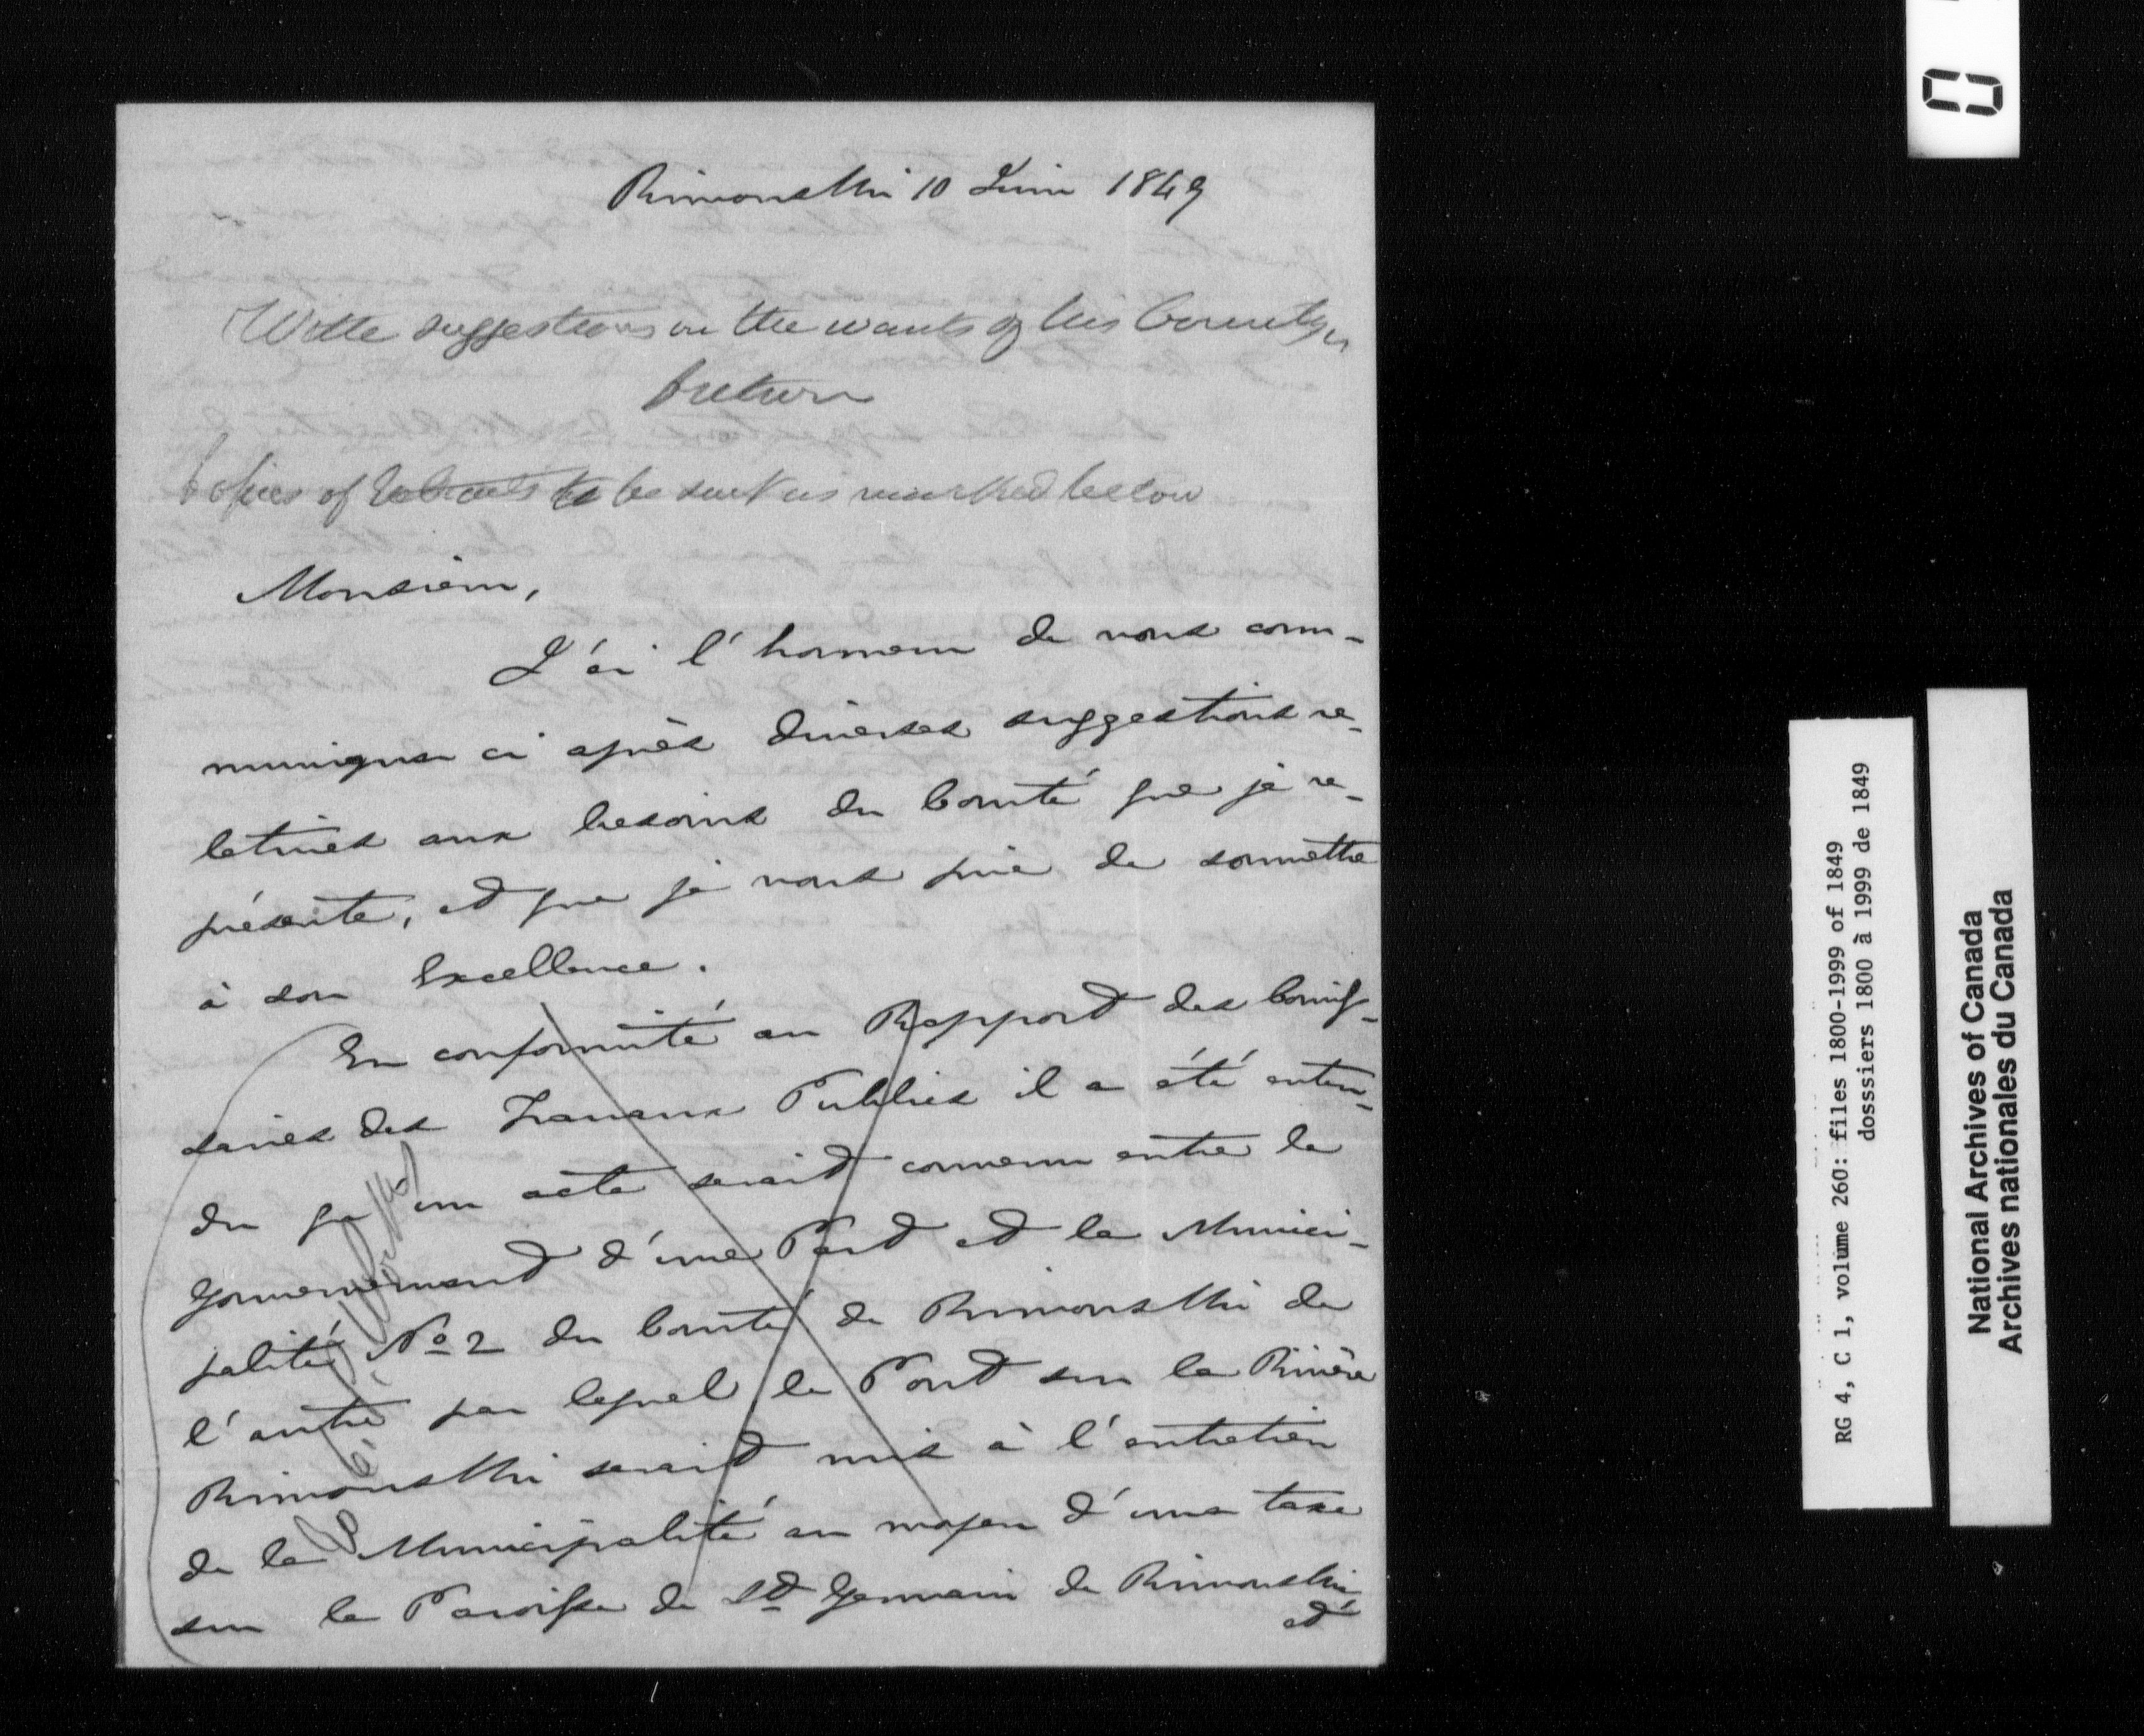 Rimouski 10 Juin 1849
With suggestions on the wants of his County
Return
Copies of Extracts to be sent as marked below
Monsieur,
J'ai l'honneur de vous com-
muniquer ci après diverses suggestions re-
latives aux besoins du Comté que je re-
présente, et que je vous prie de soumettre
à son Excellence.
En conformité au Rapport des Commis-
saires des Travaux Publics il a été enten-
du qu'un acte serait convenu entre le
Gouvernement d'une Part et la Munici-
palité No 2 du Comté de Rimouski de
l'autre par lequel le Pont sur la Rivière
Rimouski serait mis à l'entretien
de la Municipalité au moyen d'une taxe
sur la Paroisse de St Germain de Rimouski
et
RG 4, C 1, volume 260: files 1800-1999 of 1849
dossiers 1800 à 1999 de 1849
National Archives of Canada
Archives nationales du Canada